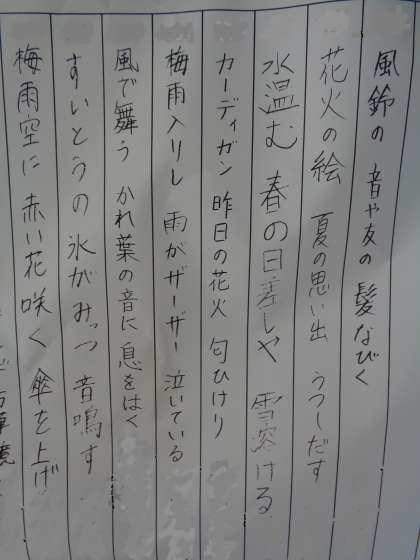 風鈴の 音や友の 髪なびく
花火の絵 夏の思い出 うつしだす
水温む 春の日差しや 雪溶ける
カーディガン 昨日の花火 匂ひけり
梅雨入りし 雨がザーザー 泣いている
風で舞う かれ葉の音に 息をはく
すいとうの 氷がみっつ 音鳴す
梅雨空に 赤い花咲く 傘を上げ